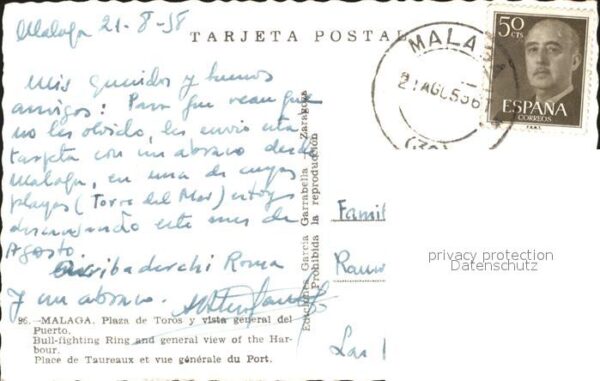 Malaga 21-8-58
TARJETA POSTAL
MALA
21 AGO
50
CTS
ESPAÑA
CORREOS
F.N.M.T.
Mis queridos y buenos
amigos: Para que vean que
no les olvido, les envio esta
tarjeta con un abrazo desde
Malaga, en una de cuyas
playas (Torre del Mar) estoy
descansando este mes de
Agosto.
Arribaderchi Roma
Y un abrazo.
Ediciones García Garrabella - Zaragoza
Prohibida la reproducción
Famil
Ramo
Las
privacy protection
Datenschutz
96.—MALAGA. Plaza de Toros y vista general del
Puerto.
Bull-fighting Ring and general view of the Har-
bour.
Place de Taureaux et vue générale du Port.